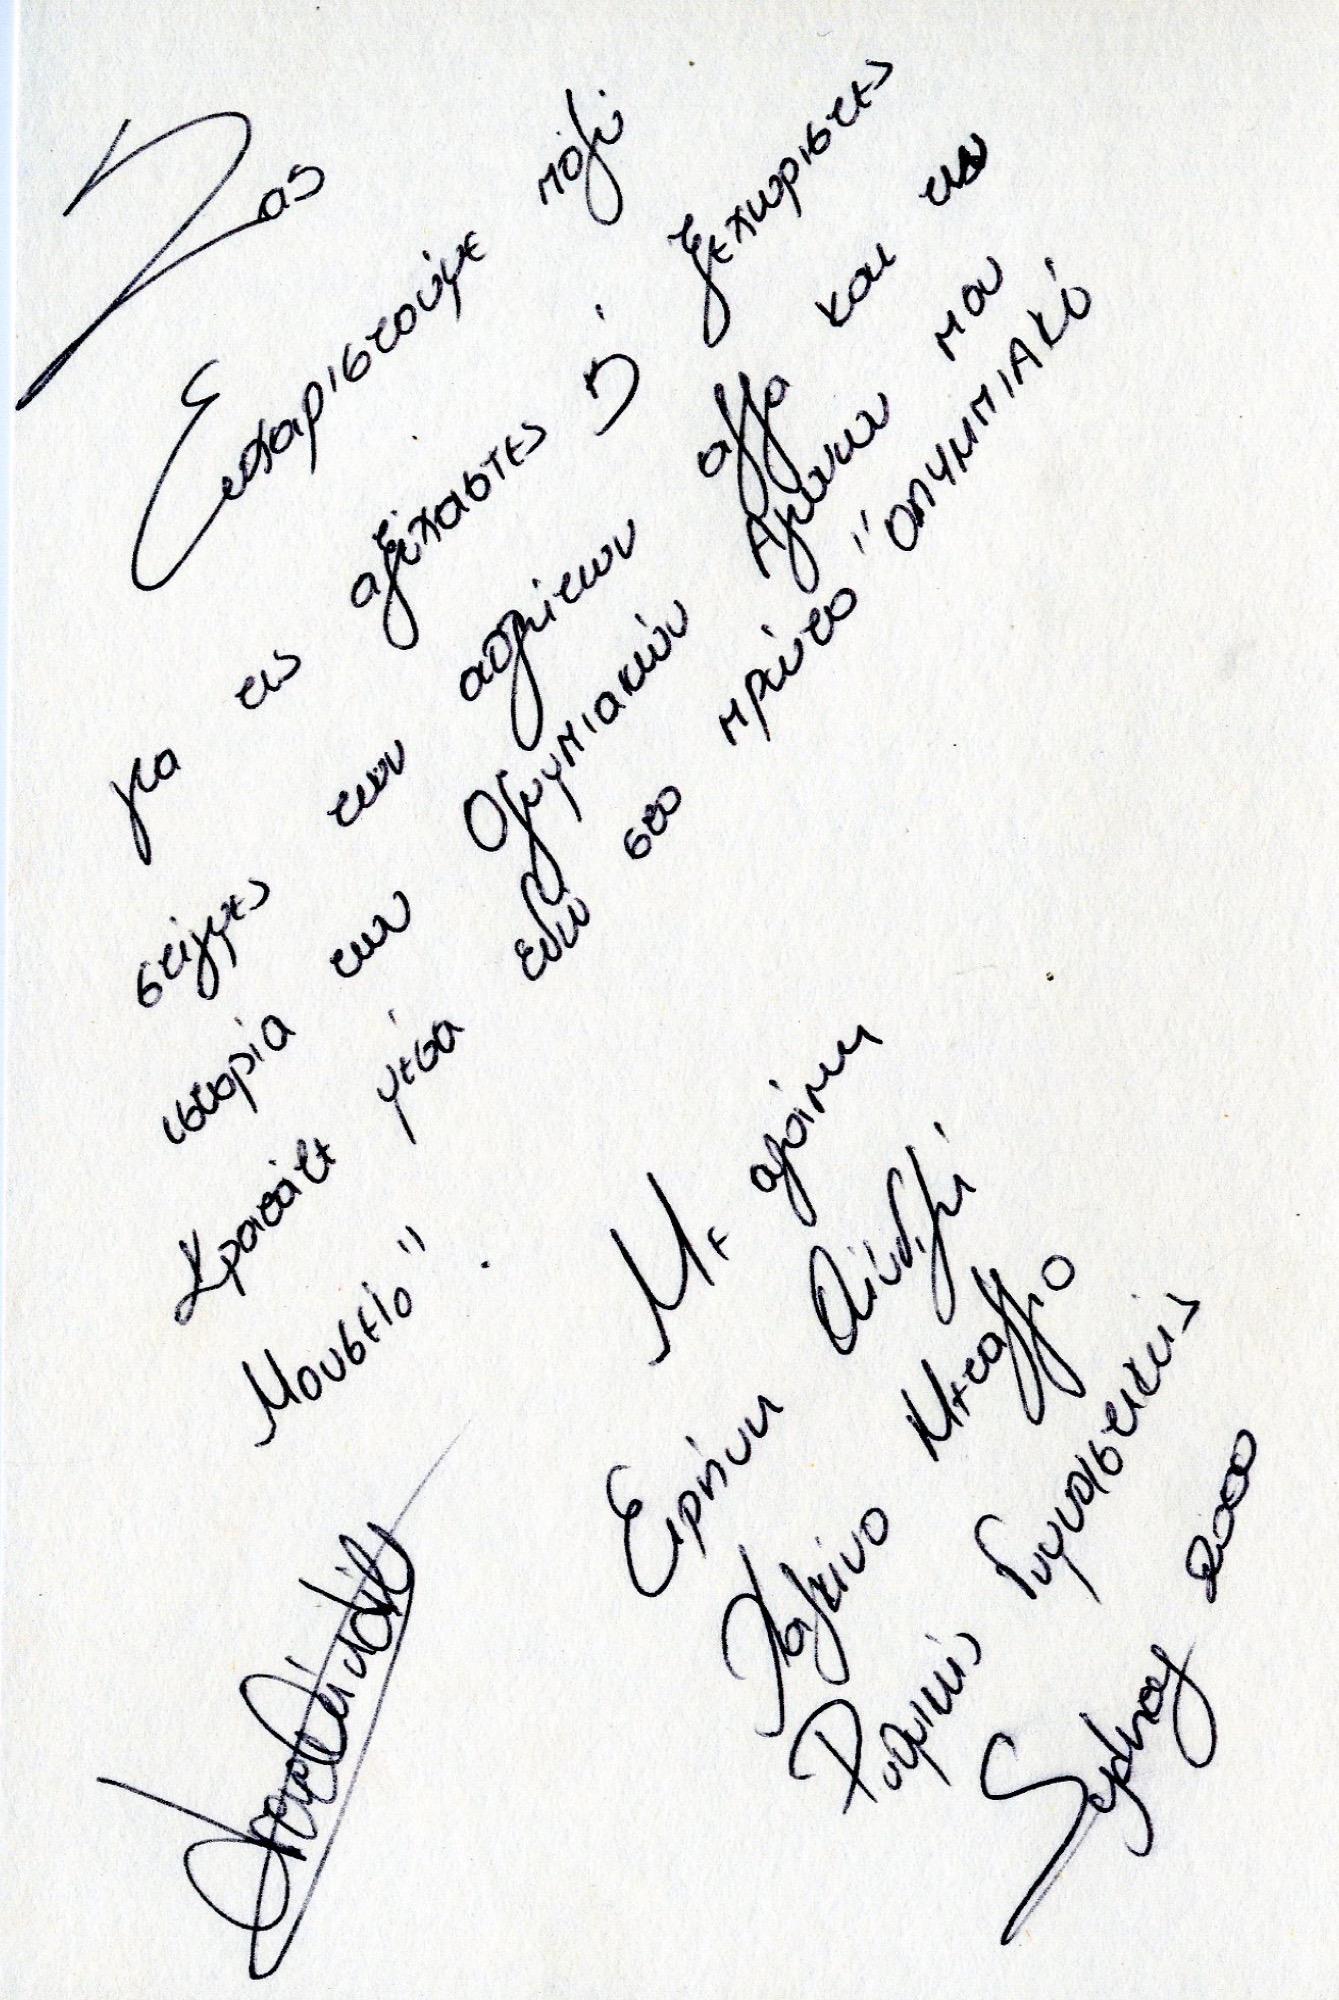 Σας
Ευχαριστούμε μαζί
για τις αξέχαστες ή ξεχωριστες
στίγμες των αθλίτων αλλα και την
ιστορία των Ολυμπιακών Αγώνων που
Κρατάτε μέσα εδώ στο πρώτο "ΟΛΥΜΠΙΑΚΟ
Μουσείο".
Με αγάπη
Ειρήνη Αϊνδιλή
Χάλκινο Μετάλλιο
Ρυθμικής Γυμναστικής
Sydney 2000